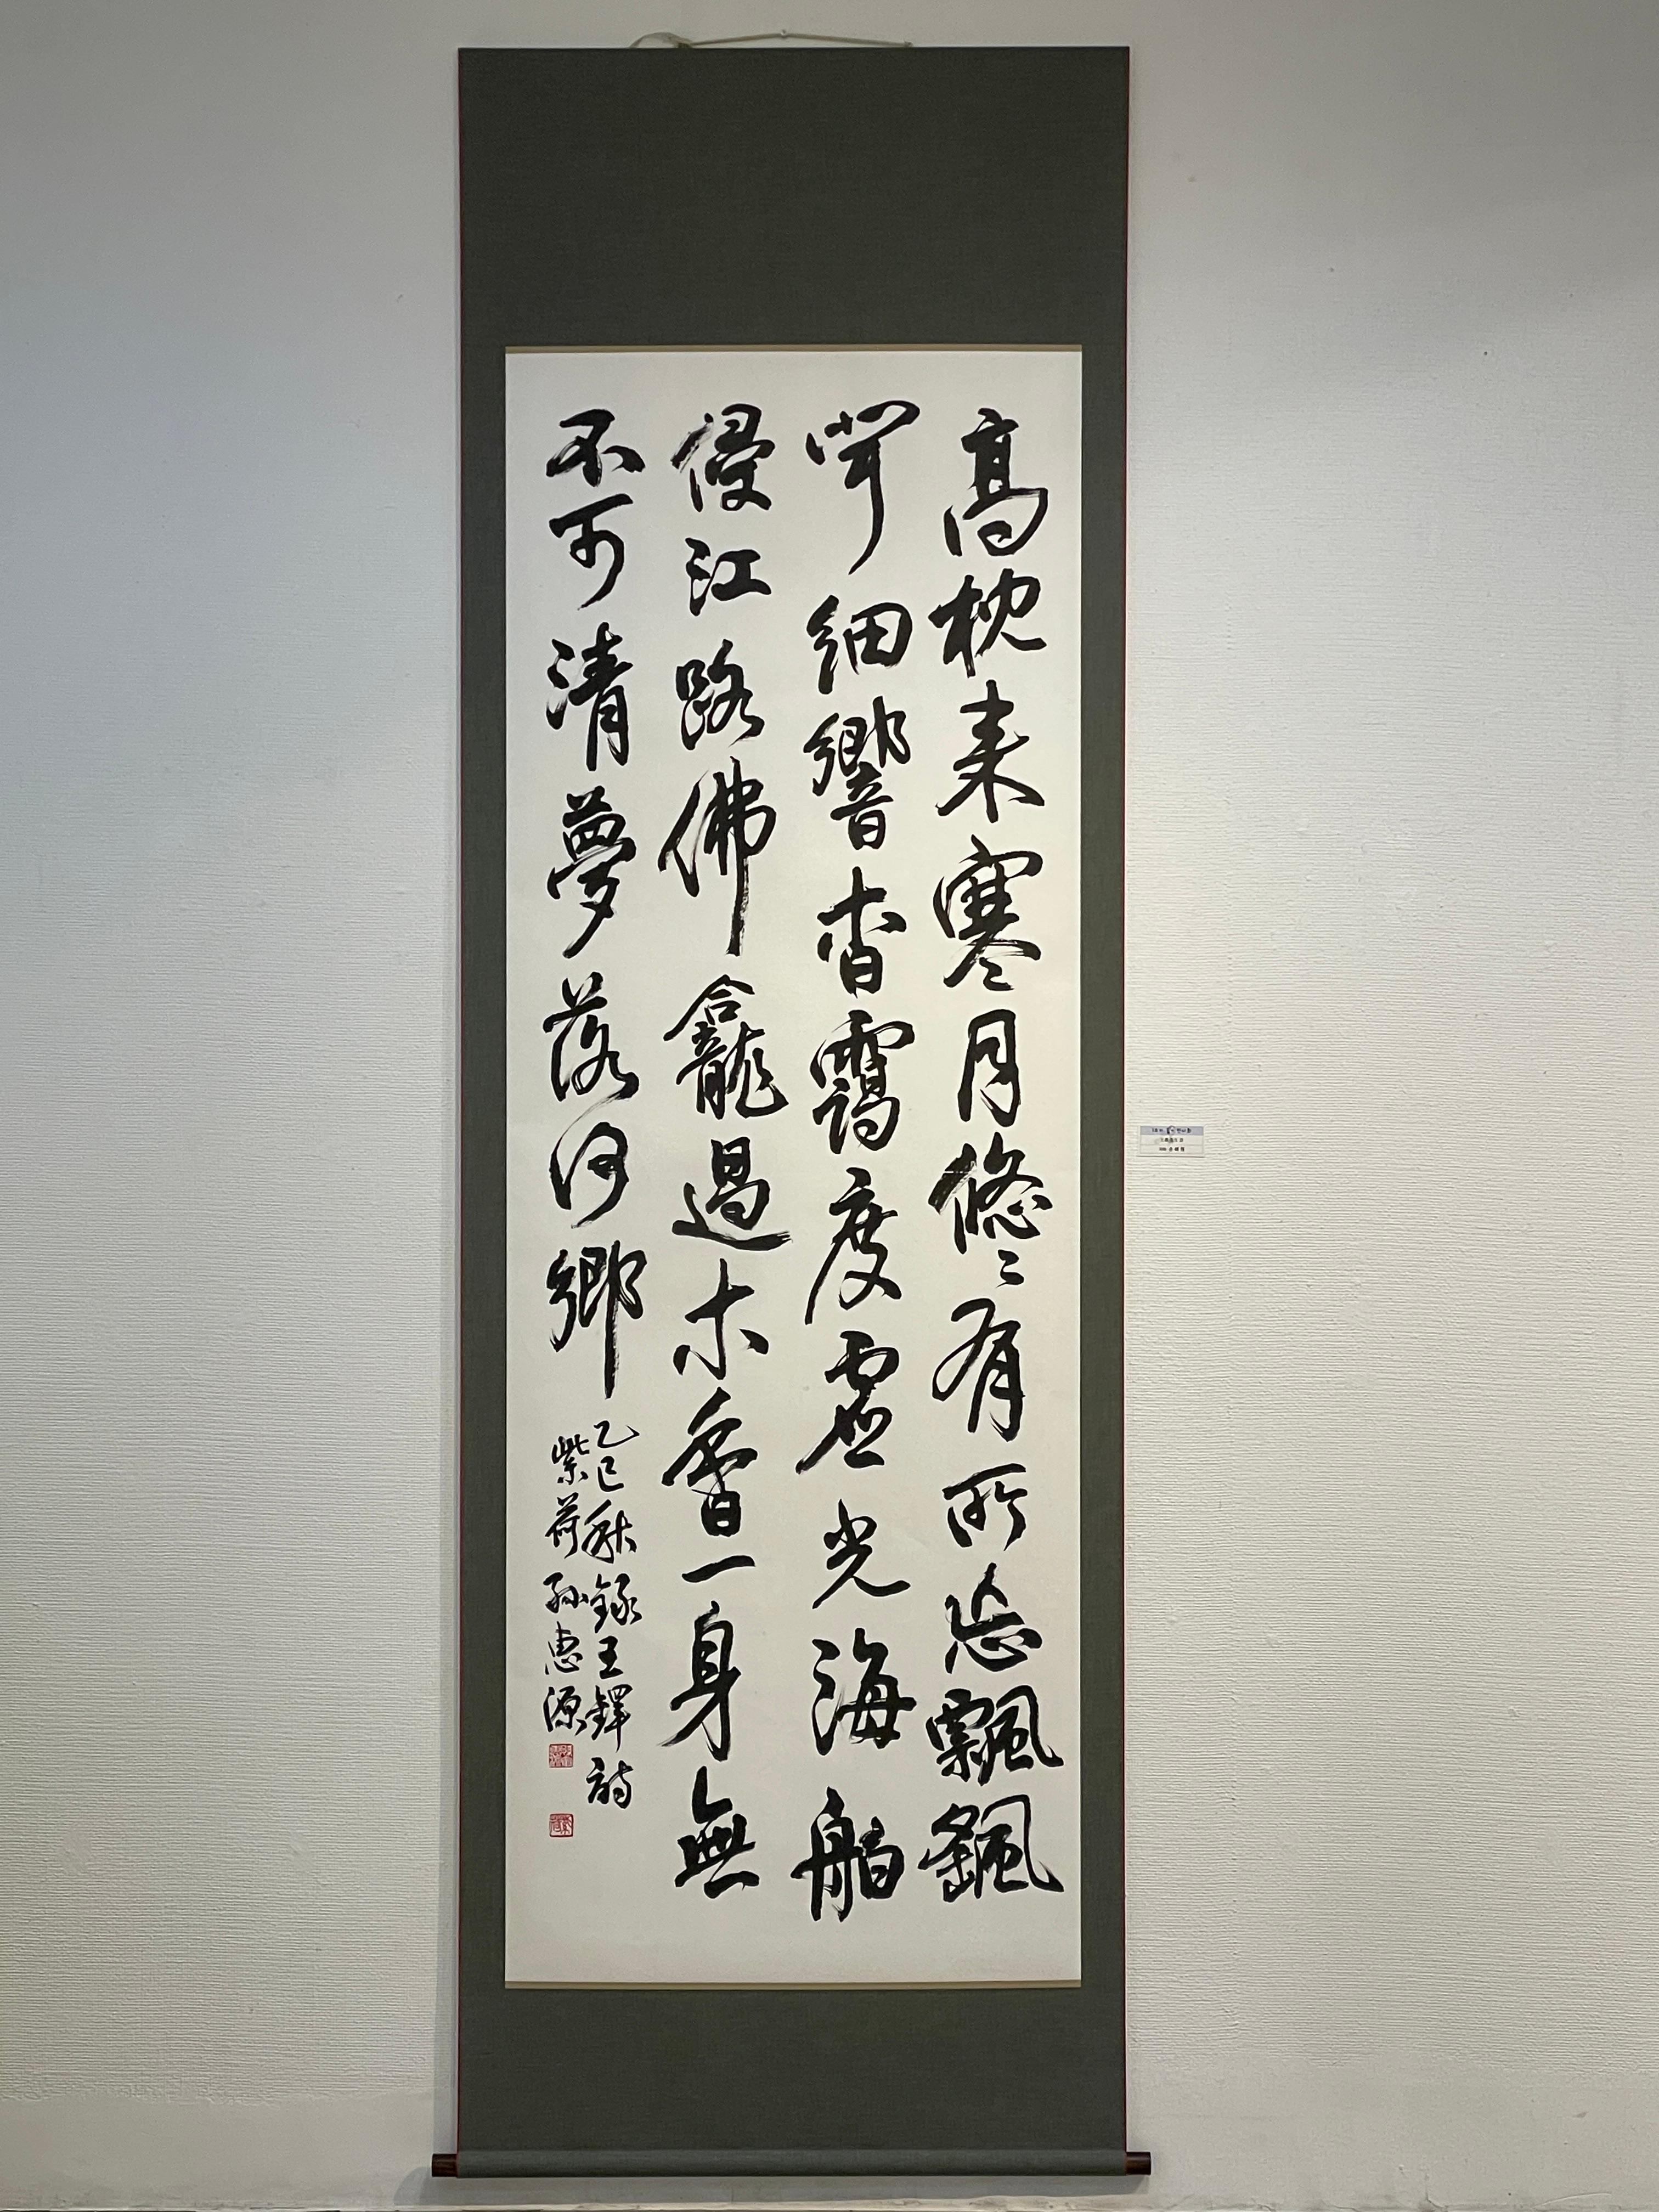 高枕來寒月悠〻有所忘飄颻
聞細響杳靄度虛光海舶
侵江路佛龕過木香一身無
不可清夢落何鄉
乙巳秋錄王鐸詩
紫荷孫惠源